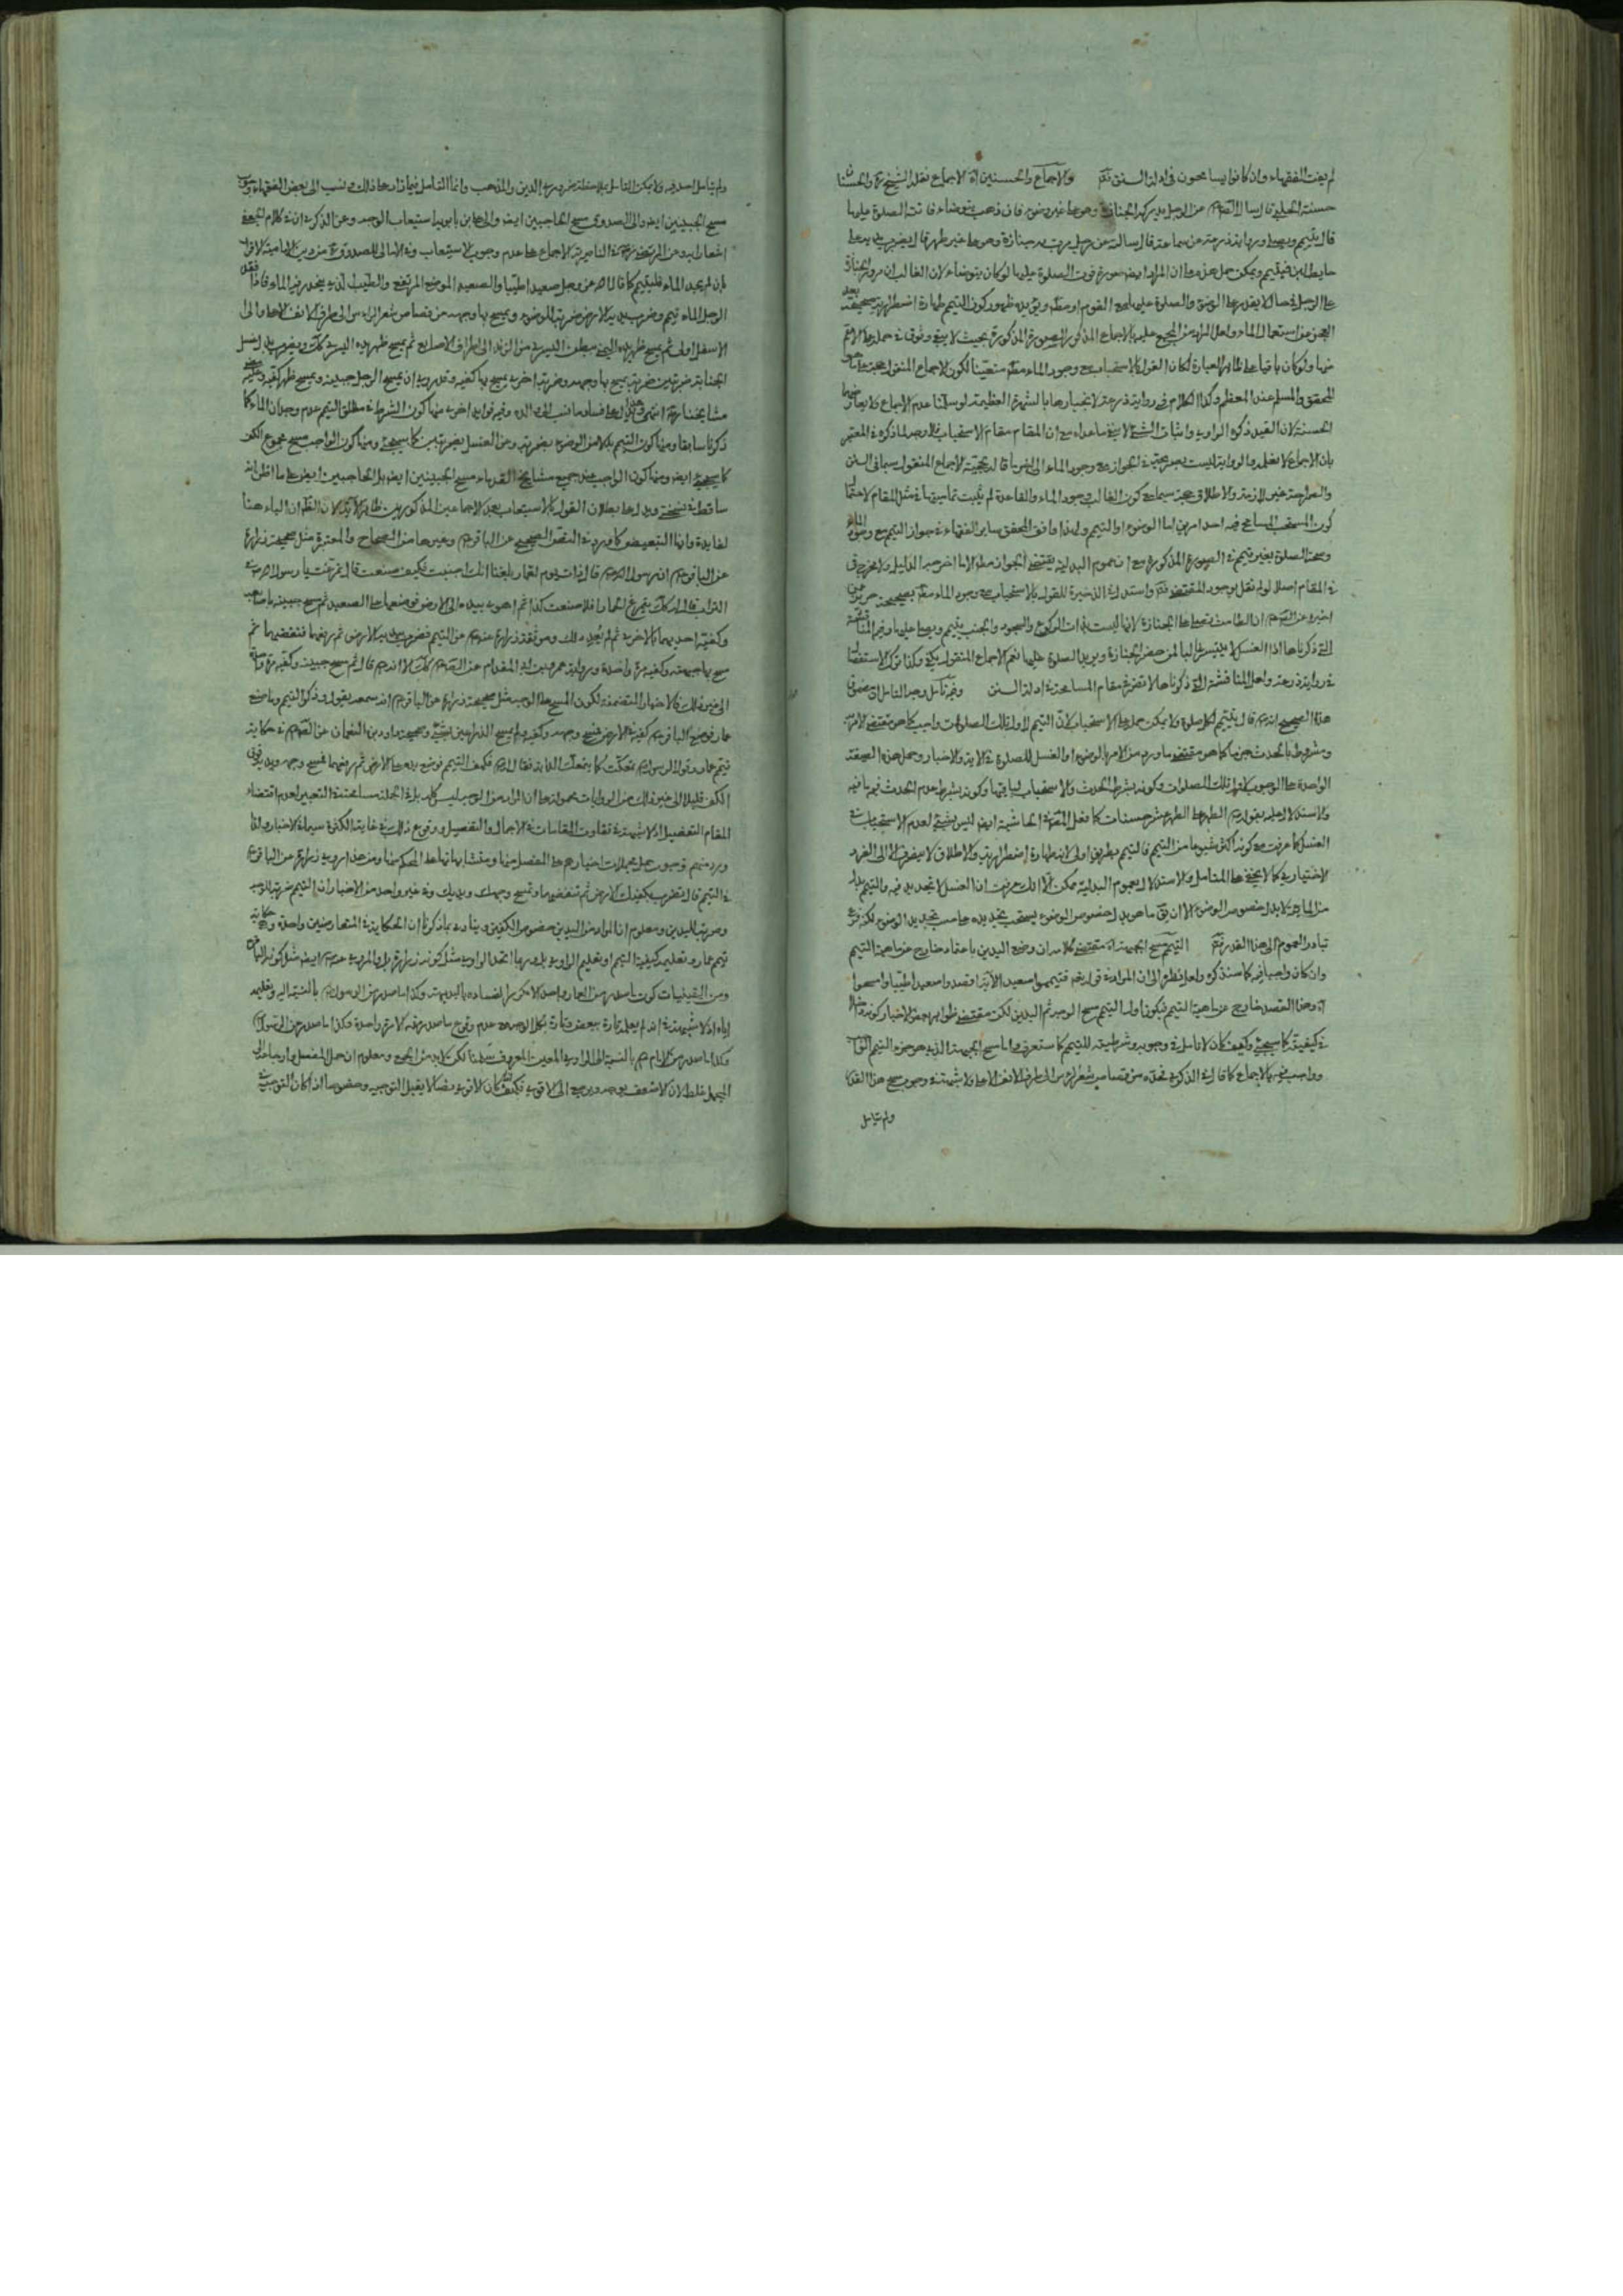 لم يعت الفقهاء وان كانوا يسامحون فى ادلة السنن قوله والاجماع والحسنين اه الاجماع نقله الشيخ ره والحسنتان
حسنة الحلبى قال سال الصادق عن الرجل يدركه الجنازة وهو على غير وضوء فان ذهب يتوضاء فاتت الصلوة عليها
قال يتيمم ويصلى ورواية زرعة عن سماعة قال سالته عن رجل مرت به جنازة وهو على غير طهر قال يضرب يديه على
حايط لبن فيتيمم ويمكن حمل هذه على ان المراد ايضا صورة فوت الصلوة عليها لو كان يتوضاء لان الغالب ان مرور الجنازة
على الرجل فى حال لا يقدر على الوضوء والصلوة عليها مع القوم او مطلقا ويؤيده ظهور كون التيمم طهارة اضطرارية بعد
العجز عن استعمال الماء ولعل المراد من المجمع عليه بالاجماع المذكور الصورة المذكورة بحيث لا يبقى وثوق فى حمله على الاعم
منها ولو كان باقيا على ظاهر العبارة لكان القول بالاستحباب مع وجود الماء مطلقا متعينا لكون الاجماع المنقول حجة
المحقق والمسلم عند المعظم وكذا الكلام فى رواية زرعة لانجبارها بالشهرة العظيمة لو سلمنا عدم الاجماع ولا يعارضها
الحسنة لان القيد ذكره الراوى واثبات الشئ لا ينفى ما عداه مع ان المقام مقام الاستحباب فلا وجه لما ذكره فى المعتبر
بان الاجماع لا نعلمه والرواية ليست حجة
والصراحة غير لازمة والاطلاق حجة سيما مع كون الغالب وجود الماء والقاعدة لم يثبت تماميتها فى مثل المقام لاحتمال
كون المستحب المسامح فيه احد امرين اما الوضوء او التيمم ولهذا وافق المحقق ساير الفقهاء فى جواز التيمم مع وجود الماء
وصحة الصلوة بغير تيمم فى الصورة المذكورة مع ان عموم البدلية يقتضى الجواز مطلقا الا ما اخرجه الدليل ولا مخرج
فى المقام اصلا لو لم نقل بوجود المقتضى قوله واستدل فى الذخيرة للقول بالاستحباب مع وجود الماء مطلقا بصحيحة حريز عمن
اخبره عن الصادق ان الطامث تصلى على الجنازة لانها ليست فيها ركوع والسجود والجنب يتيمم ويصلى عليها وفيه المناقشة
التى ذكرناها اذ الغسل لا يتيسر غالبا لمن حضر الجنازة ويريد الصلوة عليها نعم الاجماع المنقول يكفى وكذا ترك الاستفصال
فى رواية زرعة ولعل المناقشة التى ذكرناها لا تضر فى مقام المسامحة فى ادلة السنن قوله وفيه تأمل وجه التامل ان مضمون
هذا الصحيح انه قال يتيمم لكل صلوة ولا يمكن حمله على الاستحباب لان التيمم لاول تلك الصلوات واجب كما هو مقتضى الامر
ومشروط بالحدث جزما كما هو مقتضى ما ورد من الامر بالوضوء او الغسل للصلوة فى الاية والاخبار وحمل هذه الصيغة
الواحدة على الوجوب لاول تلك الصلوات وكونه بشرط الحدث والاستحباب لباقيها وكونه بشرط عدم الحدث فيه ما فيه
والاستدلال عليه بقولهم الطهر على الطهر عشر حسنات كما فعل المصنف فى الحاشية ايضا ليس بشئ لعدم الاستحباب فى
الغسل كما عرفت مع كونه اكثر شيوعا من التيمم فالتيمم بطريق اولى لانه طهارة اضطرارية والاطلاق لا ينصرف الا الى الفرد
الاختيارى كما لا يخفى على المتامل والاستدلال بعموم البدلية ممكن الا انك عرفت ان الغسل لا تجديد فيه والتيمم بدل
من الماء لا بدل خصوص الوضوء الا ان يق ما هو بدل خصوص الوضوء يستحب تجديده على حسب تجديد الوضوء لكن فرع
تبادر العموم الى هذا القدر قوله التيمم مسح الجبهة اه مقتضى كلامه ان وضع اليدين باعتقاده خارج عن ماهية التيمم
وان كان واجبا فيه كما سنذكره ولعل نظره الى ان المراد فى قوله تعالى فتيمموا صعيدا الآية اقصدوا صعيدا طيبا وامسحوا
اه وهذا القصد خارج عن ماهية التيمم فيكون اول التيمم مسح الوجه ثم اليدين لكن مقتضى ظواهر بعض الاخبار كونه داخلا
فى كيفيته كما سيجئ وكيف كان لا تامل فى وجوبه وشرطيته للتيمم كما ستعرف واما مسح الجبهة الذى هو جزء التيمم
وواجب فيه بالاجماع كما قال فى الذكرى فحده من قصاص شعر الراس الى طرف الانف الاعلى ولا شبهة فى وجوب مسح هذا القدر
ولم يتامل
ولم يتامل احد فيه ولا يمكن التامل بملاحظة ضرورة الدين والمذهب وانما التامل فيما زاد على ذلك فنسب الى بعض الفقهاء وجوب
مسح الجبينين ايضا والى الصدوق مسح الحاجبين ايضا والى على بن بابويه استيعاب الوجه وعن الذكرى ان فى كلام الجعفى
اشعار به وعن المرتضى ره فى الناصرية الاجماع على عدم وجوب الاستيعاب وفى الامالى للصدوق ره من دين الامامية الاقرار
بان لم يجد الماء فليتيمم كما قال الله عز وجل صعيدا طيبا والصعيد الموضع المرتفع والطيب الذى ينحدر عنه الماء فاذا فقد
الرجل الماء تيمم وضرب يديه الارض ضربة للوضوء ويمسح بها وجهه من قصاص شعر الراس الى طرف الانف الاعلى والى
الاسفل اولى ثم يمسح ظهر يده اليمنى ببطن اليسرى من الزند الى اطراف الاصابع ثم يمسح ظهر يده اليسرى كذلك ويضرب بدل غسل
الجنابة ضربتين ضربة يمسح بها وجهه وضربة اخرى يمسح بها كفيه وقد روى ان يمسح الرجل جبينيه ويمسح ظهر كفيه وعليه مضى
مشايخنا ره انتهى وهذا يدل على فساد ما نسب الى والده وفيه فوايد اخرى منها كون الشرط فى مطلق التيمم عدم وجدان الماء كما
ذكرنا سابقا ومنها كون التيمم بدلا من الوضوء بضربة وعن الغسل بضربتين كما سيجئ ومنها كون الواجب مسح مجموع الكف
كما سيجئ ايضا ومنها كون الواجب عند جميع مشايخنا القدماء مسح الجبينين ايضا بل الحاجبين ايضا على ما اظن انه
ساقط فى نسختى ويدل على بطلان القول بالاستيعاب بعد الاجماعين المذكورين ظاهر الآية لان الظاهر ان الباء هنا
لفايدة وانها التبعيض كما ورد فى النص الصحيح عن الباقر وغيرها من الصحاح والمعتبرة مثل صحيحة زرارة
عن الباقر ان رسول الله قال ذات يوم لعمار بلغنا انك اجنبت فكيف صنعت قال تمرغت يا رسول الله فى
التراب قال له كذلك يتمرغ الحمار افلا صنعت كذا ثم اهوى بيديه الى الارض فوضعهما على الصعيد ثم مسح جبينه باصابعه
وكفيه احديهما بالاخرى ثم لم يعد ذلك وموثقة زرارة عنه عن التيمم فضرب بيديه الارض ثم رفعهما فنفضهما ثم
مسح بها جبهته وكفيه مرة واحدة ورواية عمرو بن ابى المقدام عن الصادق كذلك الا انه قال ثم مسح جبينه وكفيه مرة واحدة
الى غير ذلك كالاخبار المتضمنة لكون المسح على الوجه مثل صحيحة زرارة عن الباقر انه سمعه يقول وذكر التيمم وما صنع
عمار فوضع الباقر كفيه فى الارض فمسح وجهه وكفيه ولم يمسح الذراعين بشئ وصحيحة داود بن النعمان عن الصادق فى حكاية
تيمم عمار وقول الرسول تمعكت كما يتمعك الدابة فقال له فكيف التيمم فوضع يديه على الارض ثم رفعهما فمسح وجهه ويديه فوق
الكف قليلا الى غير ذلك من الروايات محمولة على ان المراد من الوجه ليس كله بل فى الجملة مسامحة فى التعبير لعدم اقتضاء
المقام التفصيل اذ لا شبهة فى تفاوت المقامات فى الاجمال والتفصيل ووقوع ذلك فى غاية الكثرة سيما فى الاخبار ولذا
ورد منهم وجوب حمل مجملات اخبارهم على المفصل منها ومتشابهاتها على المحكم منها ومن هذا مروى زرارة عن الباقر
فى التيمم قال تضرب بكفيك الارض ثم تنفضهما وتمسح وجهك ويديك وفى غير واحد من الاخبار ان التيمم ضربة للوجه
وضربة لليدين ومعلوم ان المراد من اليدين خصوص الكفين وينادى بما ذكرنا ان الحكاية فى المتعارضين واحدة وحكاية
تيمم عمار وتعليمه كيفية التيمم او تعليم الراوى بل ربما اتحد الراوى مثل كونه زرارة بل والمروى عنه ايضا مثل كونه الباقر
ومن اليقينيات كون ما صدر من العمار واحدا لا مكررا لفساده بالبديهة وكذا ما صدر من الرسول بالنسبة اليه وتعليمه
اياه اذ لا شبهة فى انه لم يعلم تارة ببعض وتارة بكل الوجه مع عدم وقوع ما صدر منه الا مرة واحدة وكذا ما صدر عن الرسول
وكذا ما صدر من الامام بالنسبة الى الراوى المعين المعروف سلمنا لكن لا بد من الجمع ومعلوم ان حمل المفصل وارجاعه الى
المجمل غلط لان الاضعف يوجه ويرجع الى الاقوى فكيف اذا كان الاقوى نصا لا يقبل التوجيه وخصوصا اذا كان التوجيه